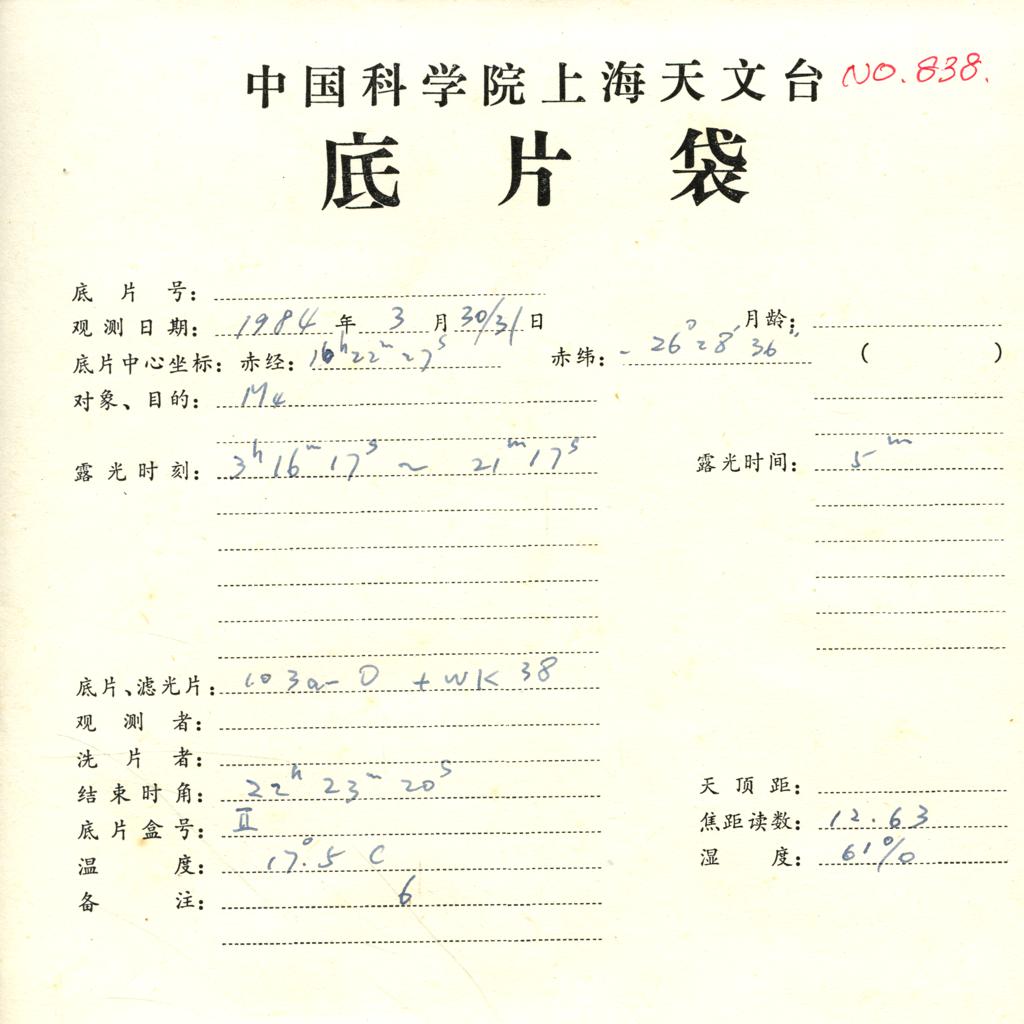 中国科学院上海天文台 NO.838.
底片袋
底片号：
观测日期： 1984 年 3 月 30/31 日 月龄：
底片中心坐标：赤经： 16h 22m 27s 赤纬： - 26° 28′ 36″ ( )
对象、目的： M4
露光时刻： 3h 16m 17s ~ 21m 17s 露光时间： 5m
底片、滤光片： 103a-O + WK 38
观测者：
洗片者：
结束时角： 22h 23m 20s 天顶距：
底片盒号： II 焦距读数： 12.63
温度： 17°.5 C 湿度： 61%
备注： 6